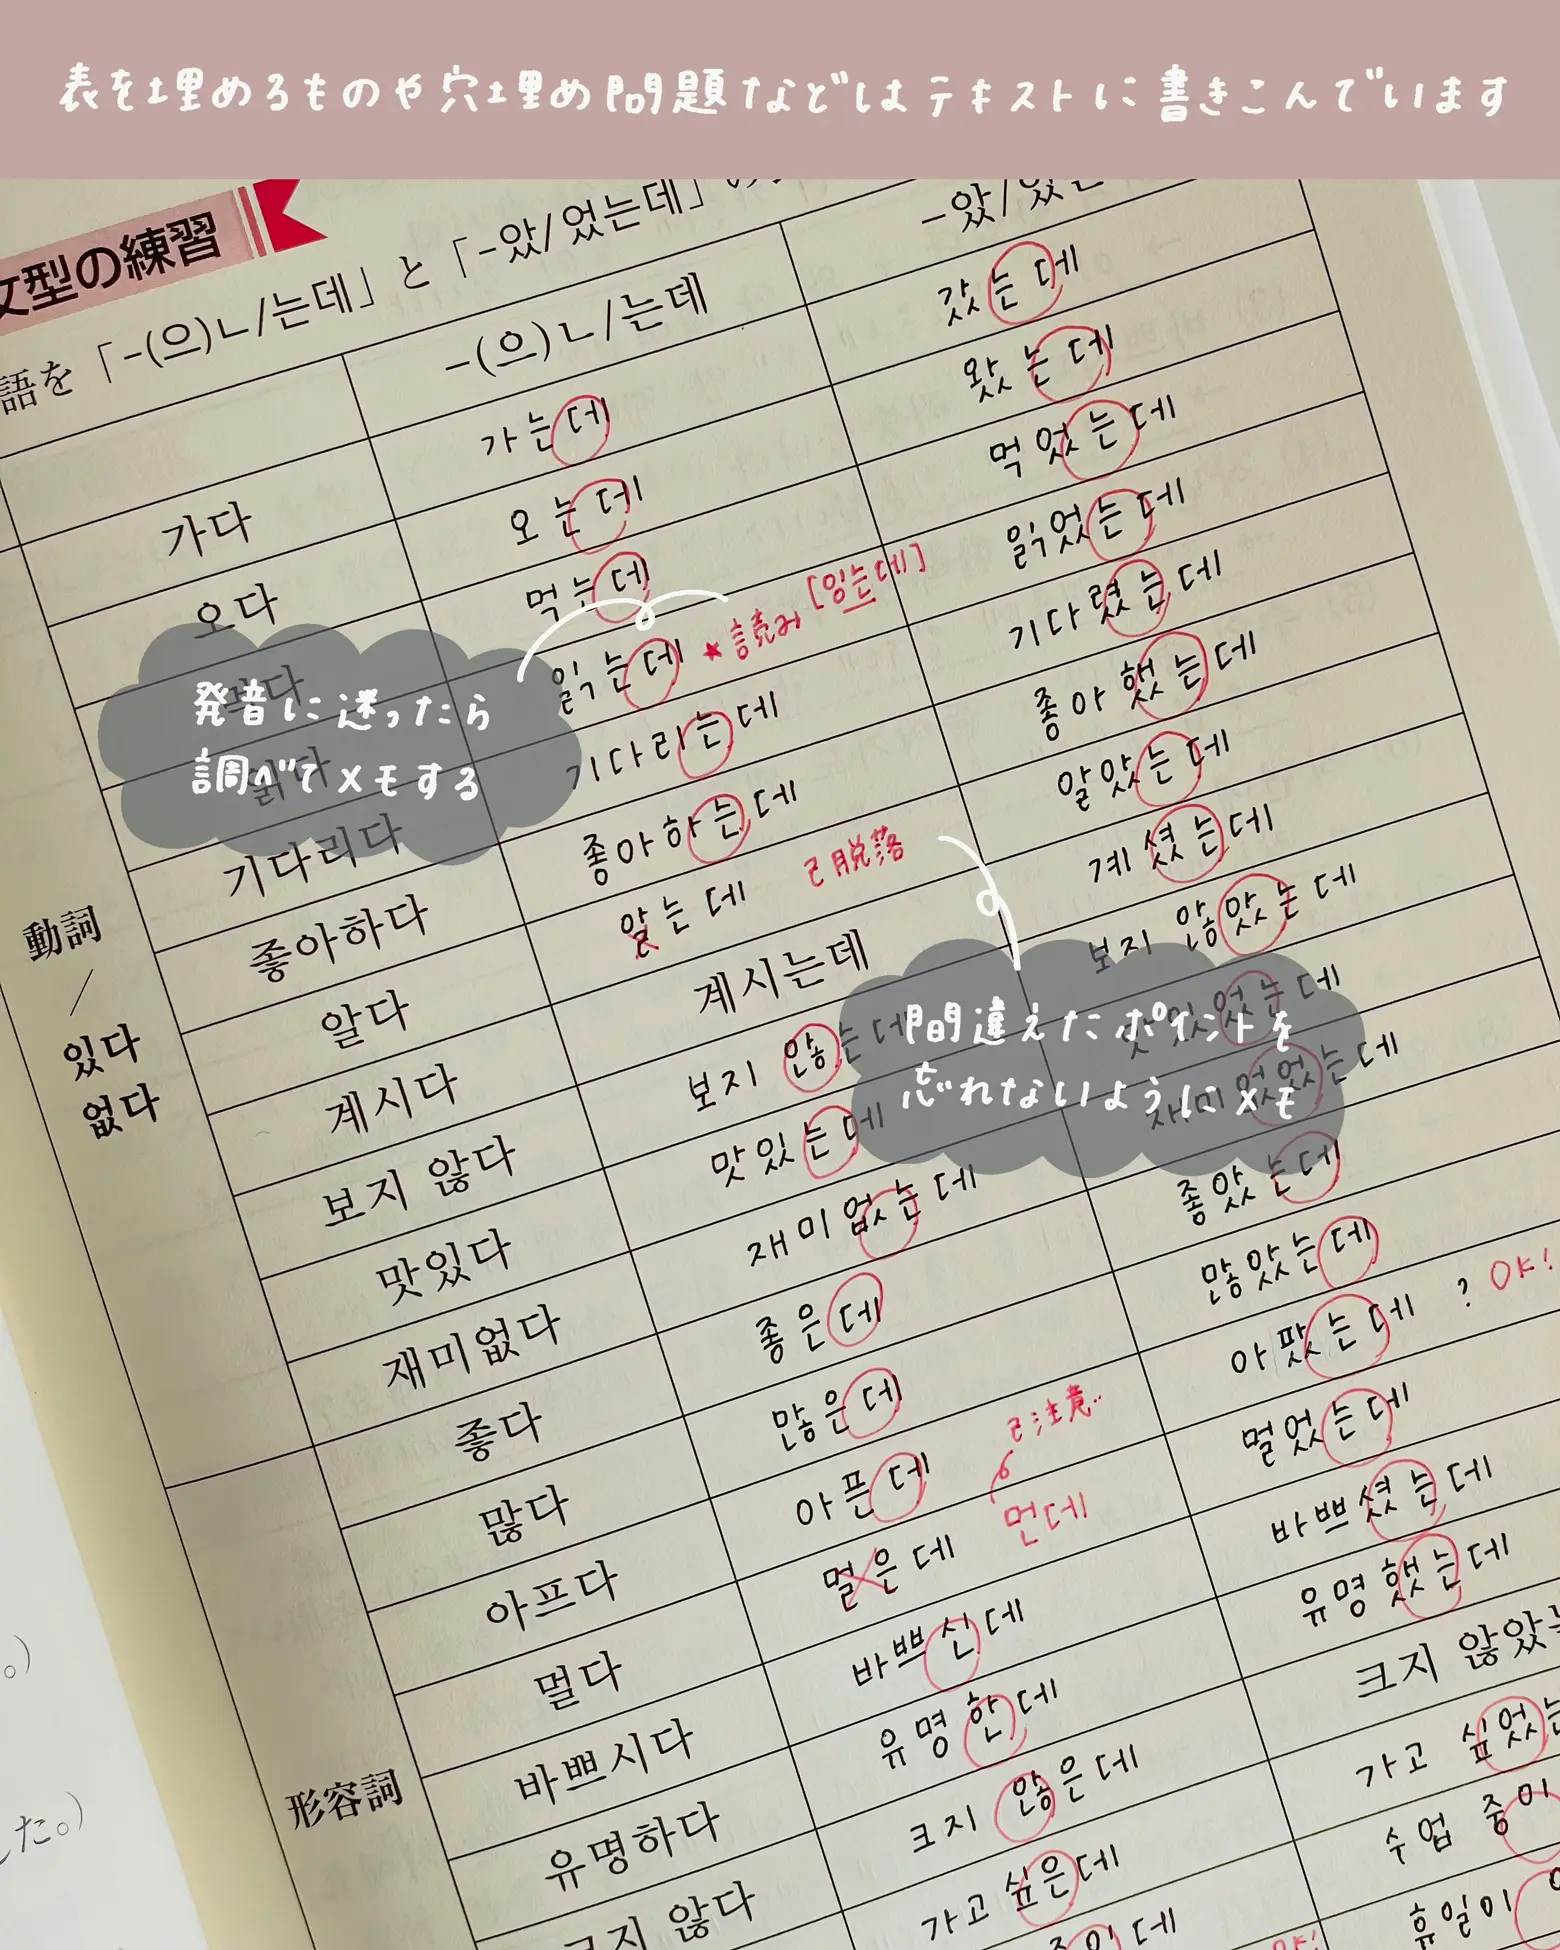 表を埋めるものや穴埋め問題などはテキストに書きこんでいます
文型の練習
語を「-(으)ㄴ/는데」と「-았/었는데」の
-(으)ㄴ/는데
-았/었는
動詞
/
있다
없다
가다 가는데 갔는데
오다 오는데 왔는데
먹는데 먹었는데
읽다 읽는데 ★読み [잉는데] 읽었는데
発音に迷ったら
調べてメモする
기다리다 기다리는데 기다렸는데
좋아하다 좋아하는데 좋아했는데
알다 알는데 ㄹ脱落 알았는데
계시다 계시는데 계셨는데
보지 않다 보지 않는데 보지 않았는데
間違えたポイントを
忘れないようにメモ
맛있다 맛있는데 맛있었는데
재미없다 재미없는데 재미없었는데
形容詞
좋다 좋은데 좋았는데
많다 많은데 많았는데
아프다 아픈데 아팠는데 ? OK!
멀다 멀은데 먼데 ㄹ注意 멀었는데
바쁘시다 바쁘신데 바쁘셨는데
유명하다 유명한데 유명했는데
크지 않다 크지 않은데 크지 않았는
가고 싶은데 가고 싶었는
수업 중이
휴일이
OK!
した。)
。)